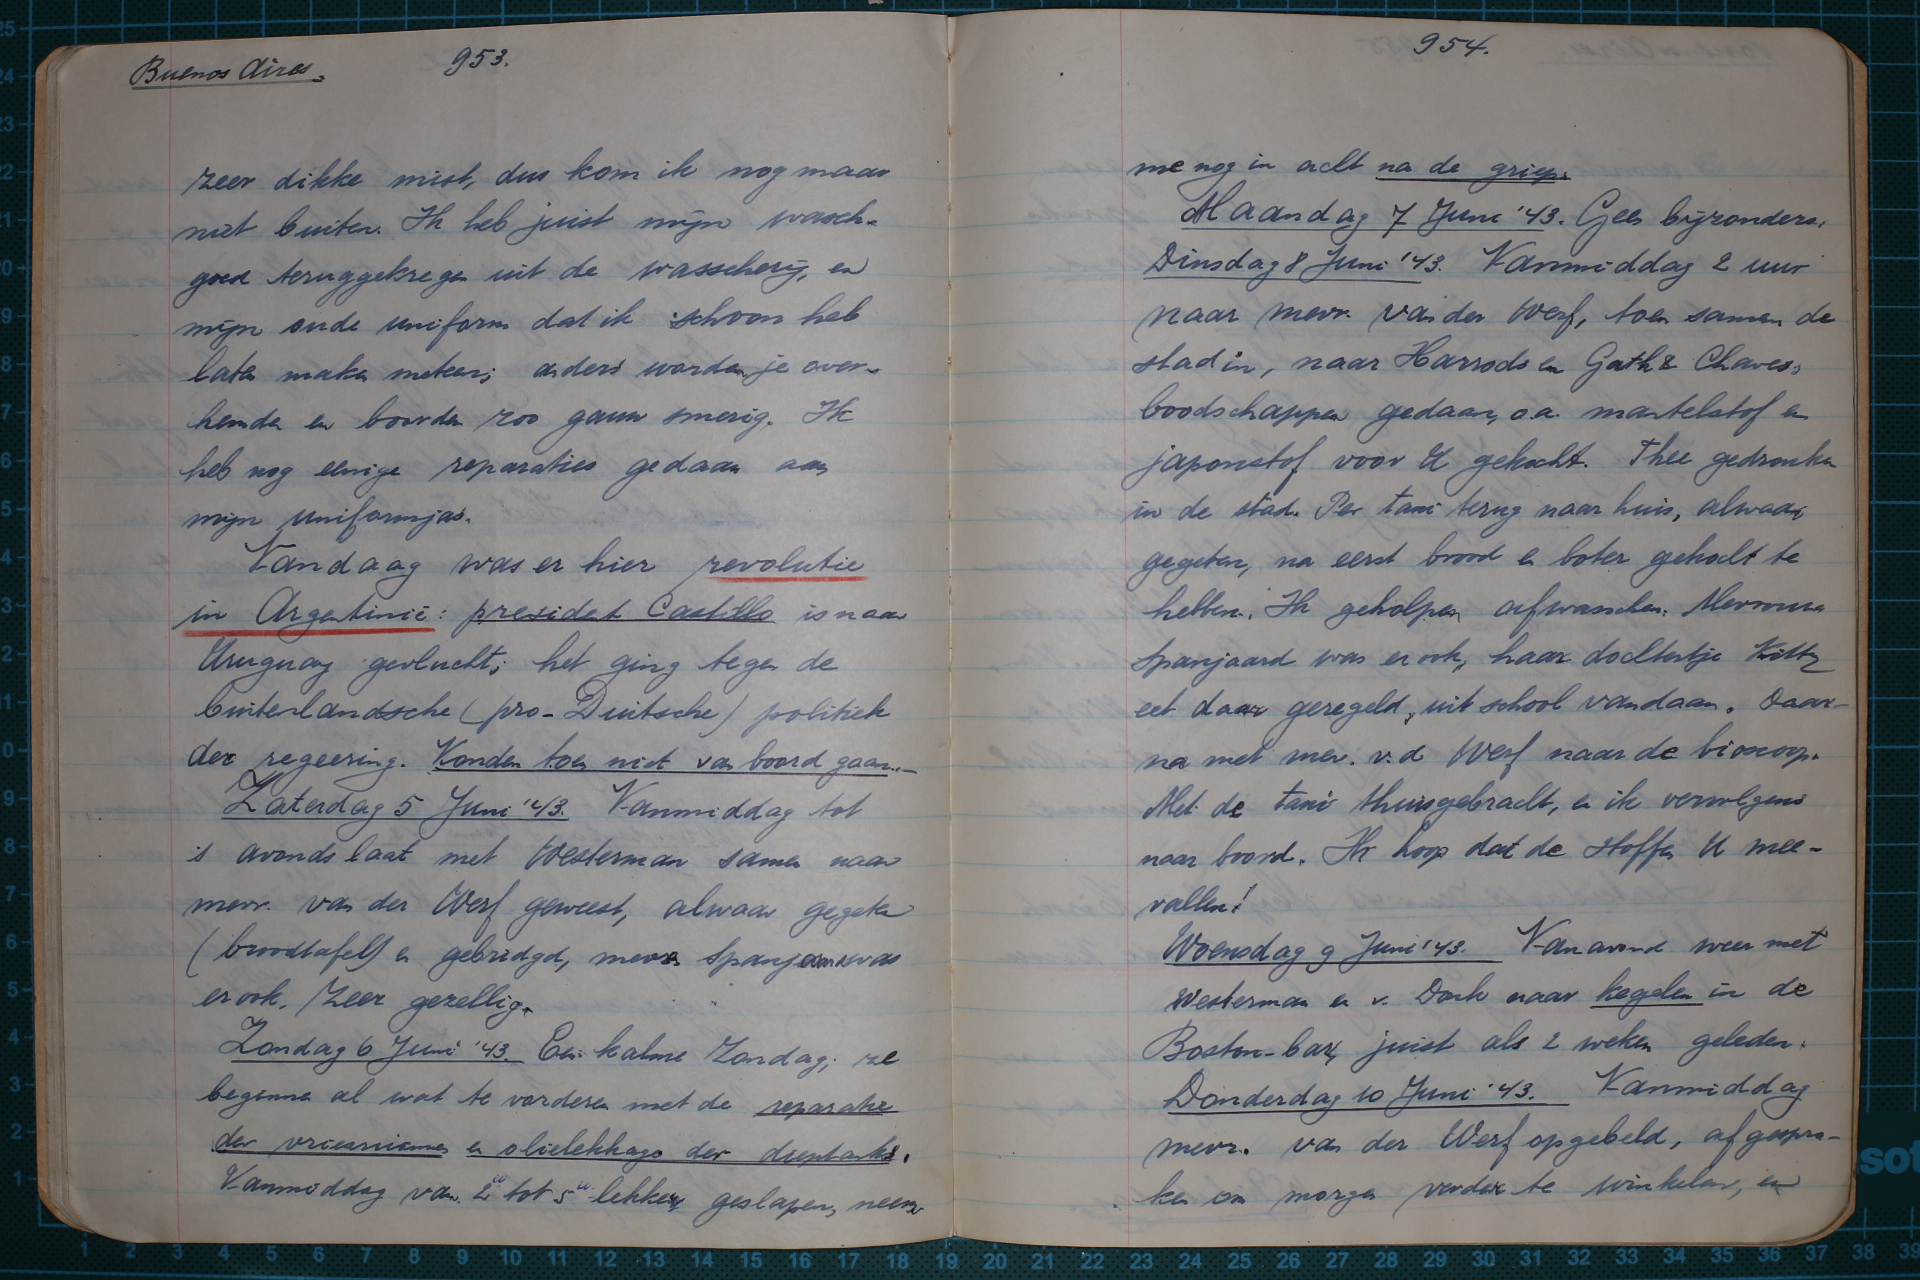 Buenos Aires.
953.
zeer dikke mist, dus kom ik nog maar
niet buiten. Ik heb juist mijn wasch-
goed teruggekregen uit de wasscherij, en
mijn oude uniform dat ik schoon heb
laten maken meteen; anders worden je over-
hemden en boorden zoo gauw smerig. Ik
heb nog eenige reparaties gedaan aan
mijn uniformjas.
Vandaag was er hier revolutie
in Argentinië: president Castillo is naar
Uruguay gevlucht; het ging tegen de
buitenlandsche (pro-Duitsche) politiek
der regeering. Konden toen niet van boord gaan.-
Zaterdag 5 Juni '43. Vanmiddag tot
's avonds laat met Westerman samen naar
mevr. van der Werf geweest, alwaar gegeten
(broodtafel) en gebridged, mevr. Spanjaard was
er ook. Zeer gezellig.
Zondag 6 Juni '43. Een kalme Zondag; ze
beginnen al wat te vorderen met de reparatie
der vriesruimen en olielekkage der dieptanks.
Vanmiddag van 2u tot 5u lekker geslapen, neem
954.
me nog in acht na de griep.
Maandag 7 Juni '43. Geen bijzonders.
Dinsdag 8 Juni '43. Vanmiddag 2 uur
naar mevr. van der Werf, toen samen de
stad in, naar Harrods en Gath & Chaves,
boodschappen gedaan, o.a. mantelstof en
japonstof voor U gekocht. Thee gedronken
in de stad. Per taxi terug naar huis, alwaar
gegeten, na eerst brood en boter gekocht te
hebben. Ik geholpen afwasschen. Mevrouw
Spanjaard was er ook, haar dochtertje Kitty
eet daar geregeld, uit school vandaan. Daar-
na met mevr. v.d Werf naar de bioscoop.
Met de taxi thuisgebracht, en ik vervolgens
naar boord. Ik hoop dat de stoffen U mee-
vallen!
Woensdag 9 Juni '43. Vanavond weer met
Westerman en v. Donk naar kegelen in de
Boston-bar, juist als 2 weken geleden.
Donderdag 10 Juni '43. Vanmiddag
mevr. van der Werf opgebeld, afgespro-
ken om morgen verder te winkelen, en